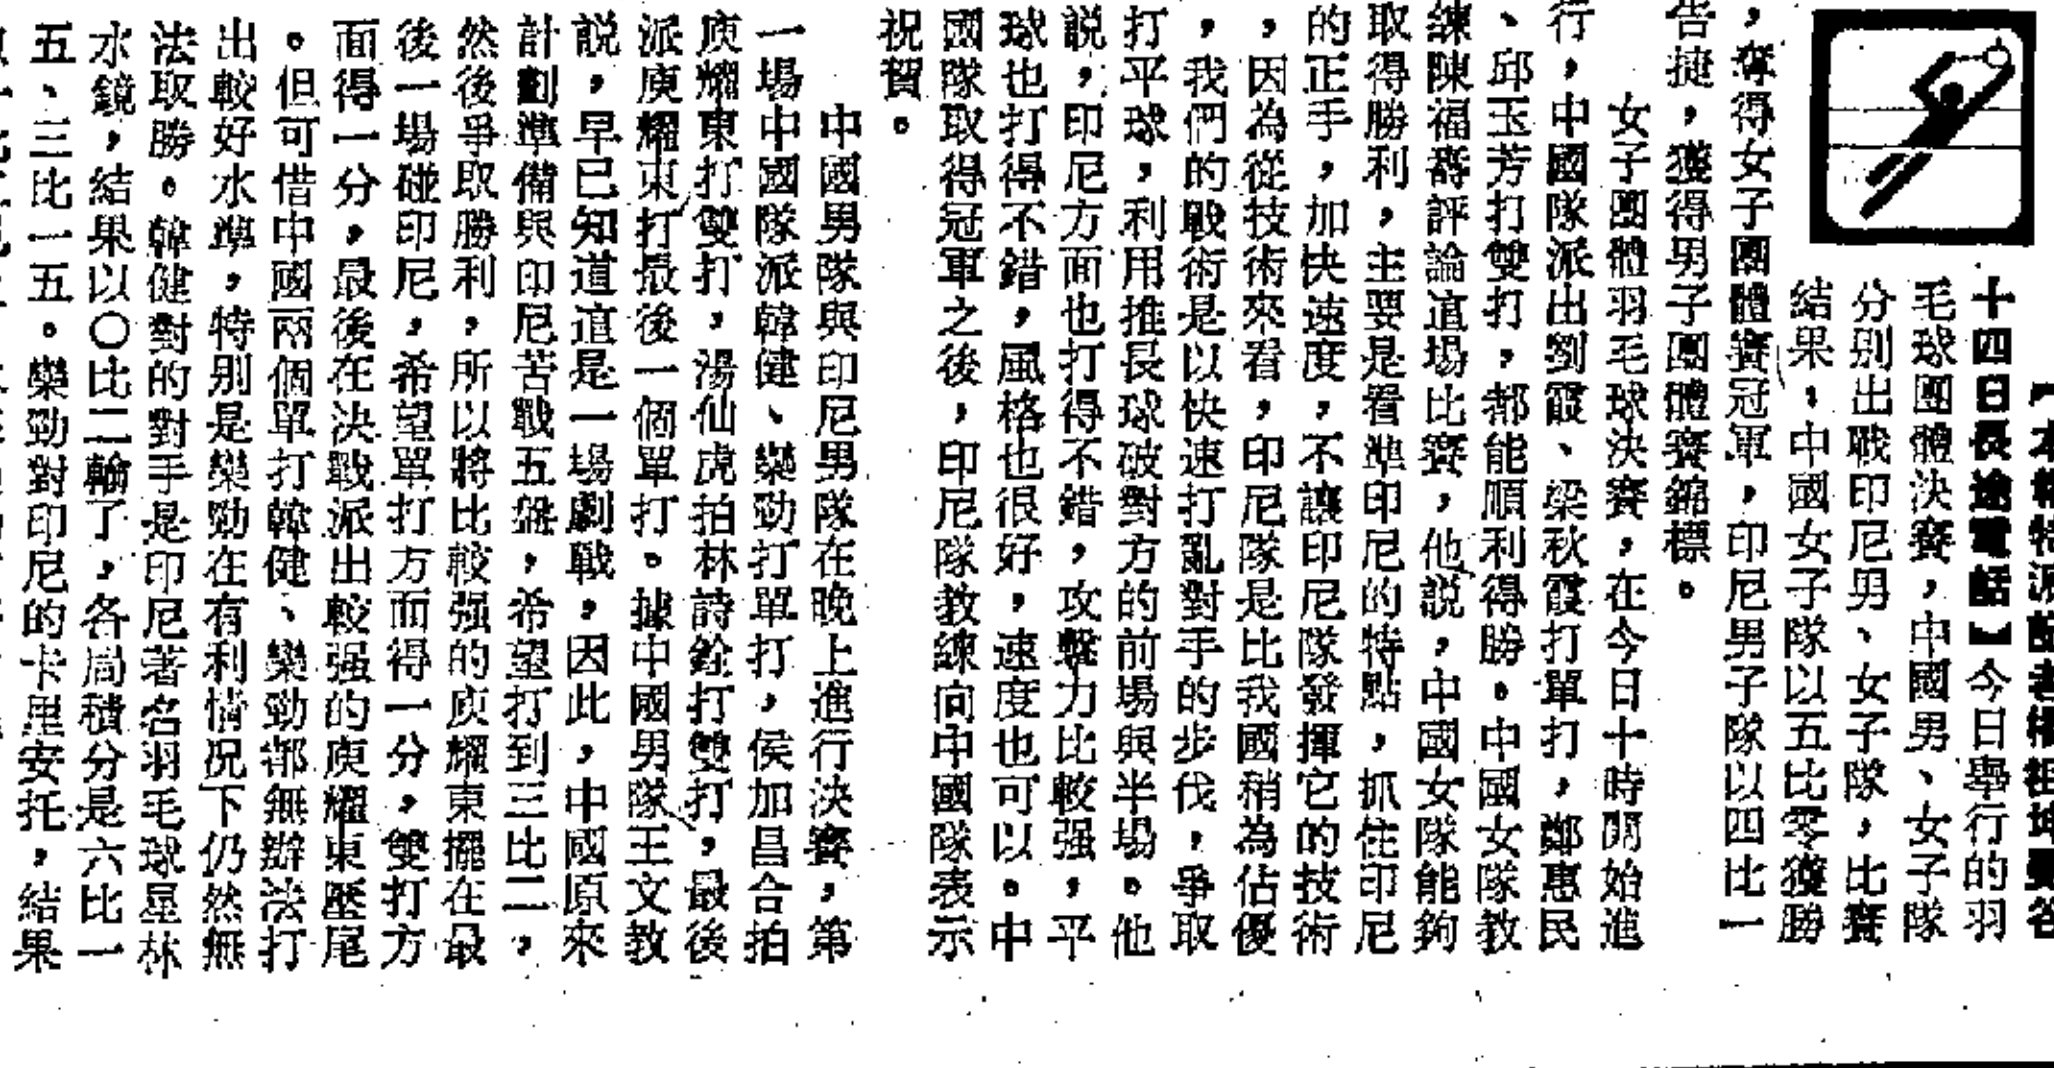 【本報特派記者楊祖坤曼谷
十四日長途電話】今日舉行的羽
毛球團體決賽，中國男、女子隊
分別出戰印尼男、女子隊，比賽
結果，中國女子隊以五比零獲勝
，奪得女子團體賽冠軍，印尼男子隊以四比一
告捷，獲得男子團體賽錦標。
女子團體羽毛球決賽，在今日十時開始進
行，中國隊派出劉霞、梁秋霞打單打，鄭惠民
、邱玉芳打雙打，都能順利得勝。中國女隊教
練陳福壽評論這場比賽，他説，中國女隊能夠
取得勝利，主要是看準印尼的特點，抓住印尼
的正手，加快速度，不讓印尼隊發揮它的技術
，因為從技術來看，印尼隊是比我國稍為佔優
，我們的戰術是以快速打亂對手的步伐，爭取
打平球，利用推長球破對方的前場與半場。他
説，印尼方面也打得不錯，攻擊力比較强，平
球也打得不錯，風格也很好，速度也可以。中
國隊取得冠軍之後，印尼隊教練向中國隊表示
祝賀。
中國男隊與印尼男隊在晚上進行決賽，第
一場中國隊派韓健、欒勁打單打，侯加昌合拍
庾耀東打雙打，湯仙虎拍林詩銓打雙打，最後
派庾耀東打最後一個單打。據中國男隊王文教
説，早已知道這是一場劇戰，因此，中國原來
計劃準備與印尼苦戰五盤，希望打到三比二，
然後爭取勝利，所以將比較强的庾耀東擺在最
後一場碰印尼，希望單打方面得一分，雙打方
面得一分，最後在決戰派出較强的庾耀東壓尾
。但可惜中國兩個單打韓健、欒勁都無辦法打
出較好水準，特別是欒勁在有利情况下仍然無
法取勝。韓健對的對手是印尼著名羽毛球星林
水鏡，結果以〇比二輸了，各局積分是六比一
五、三比一五。欒勁對印尼的卡里安托，結果